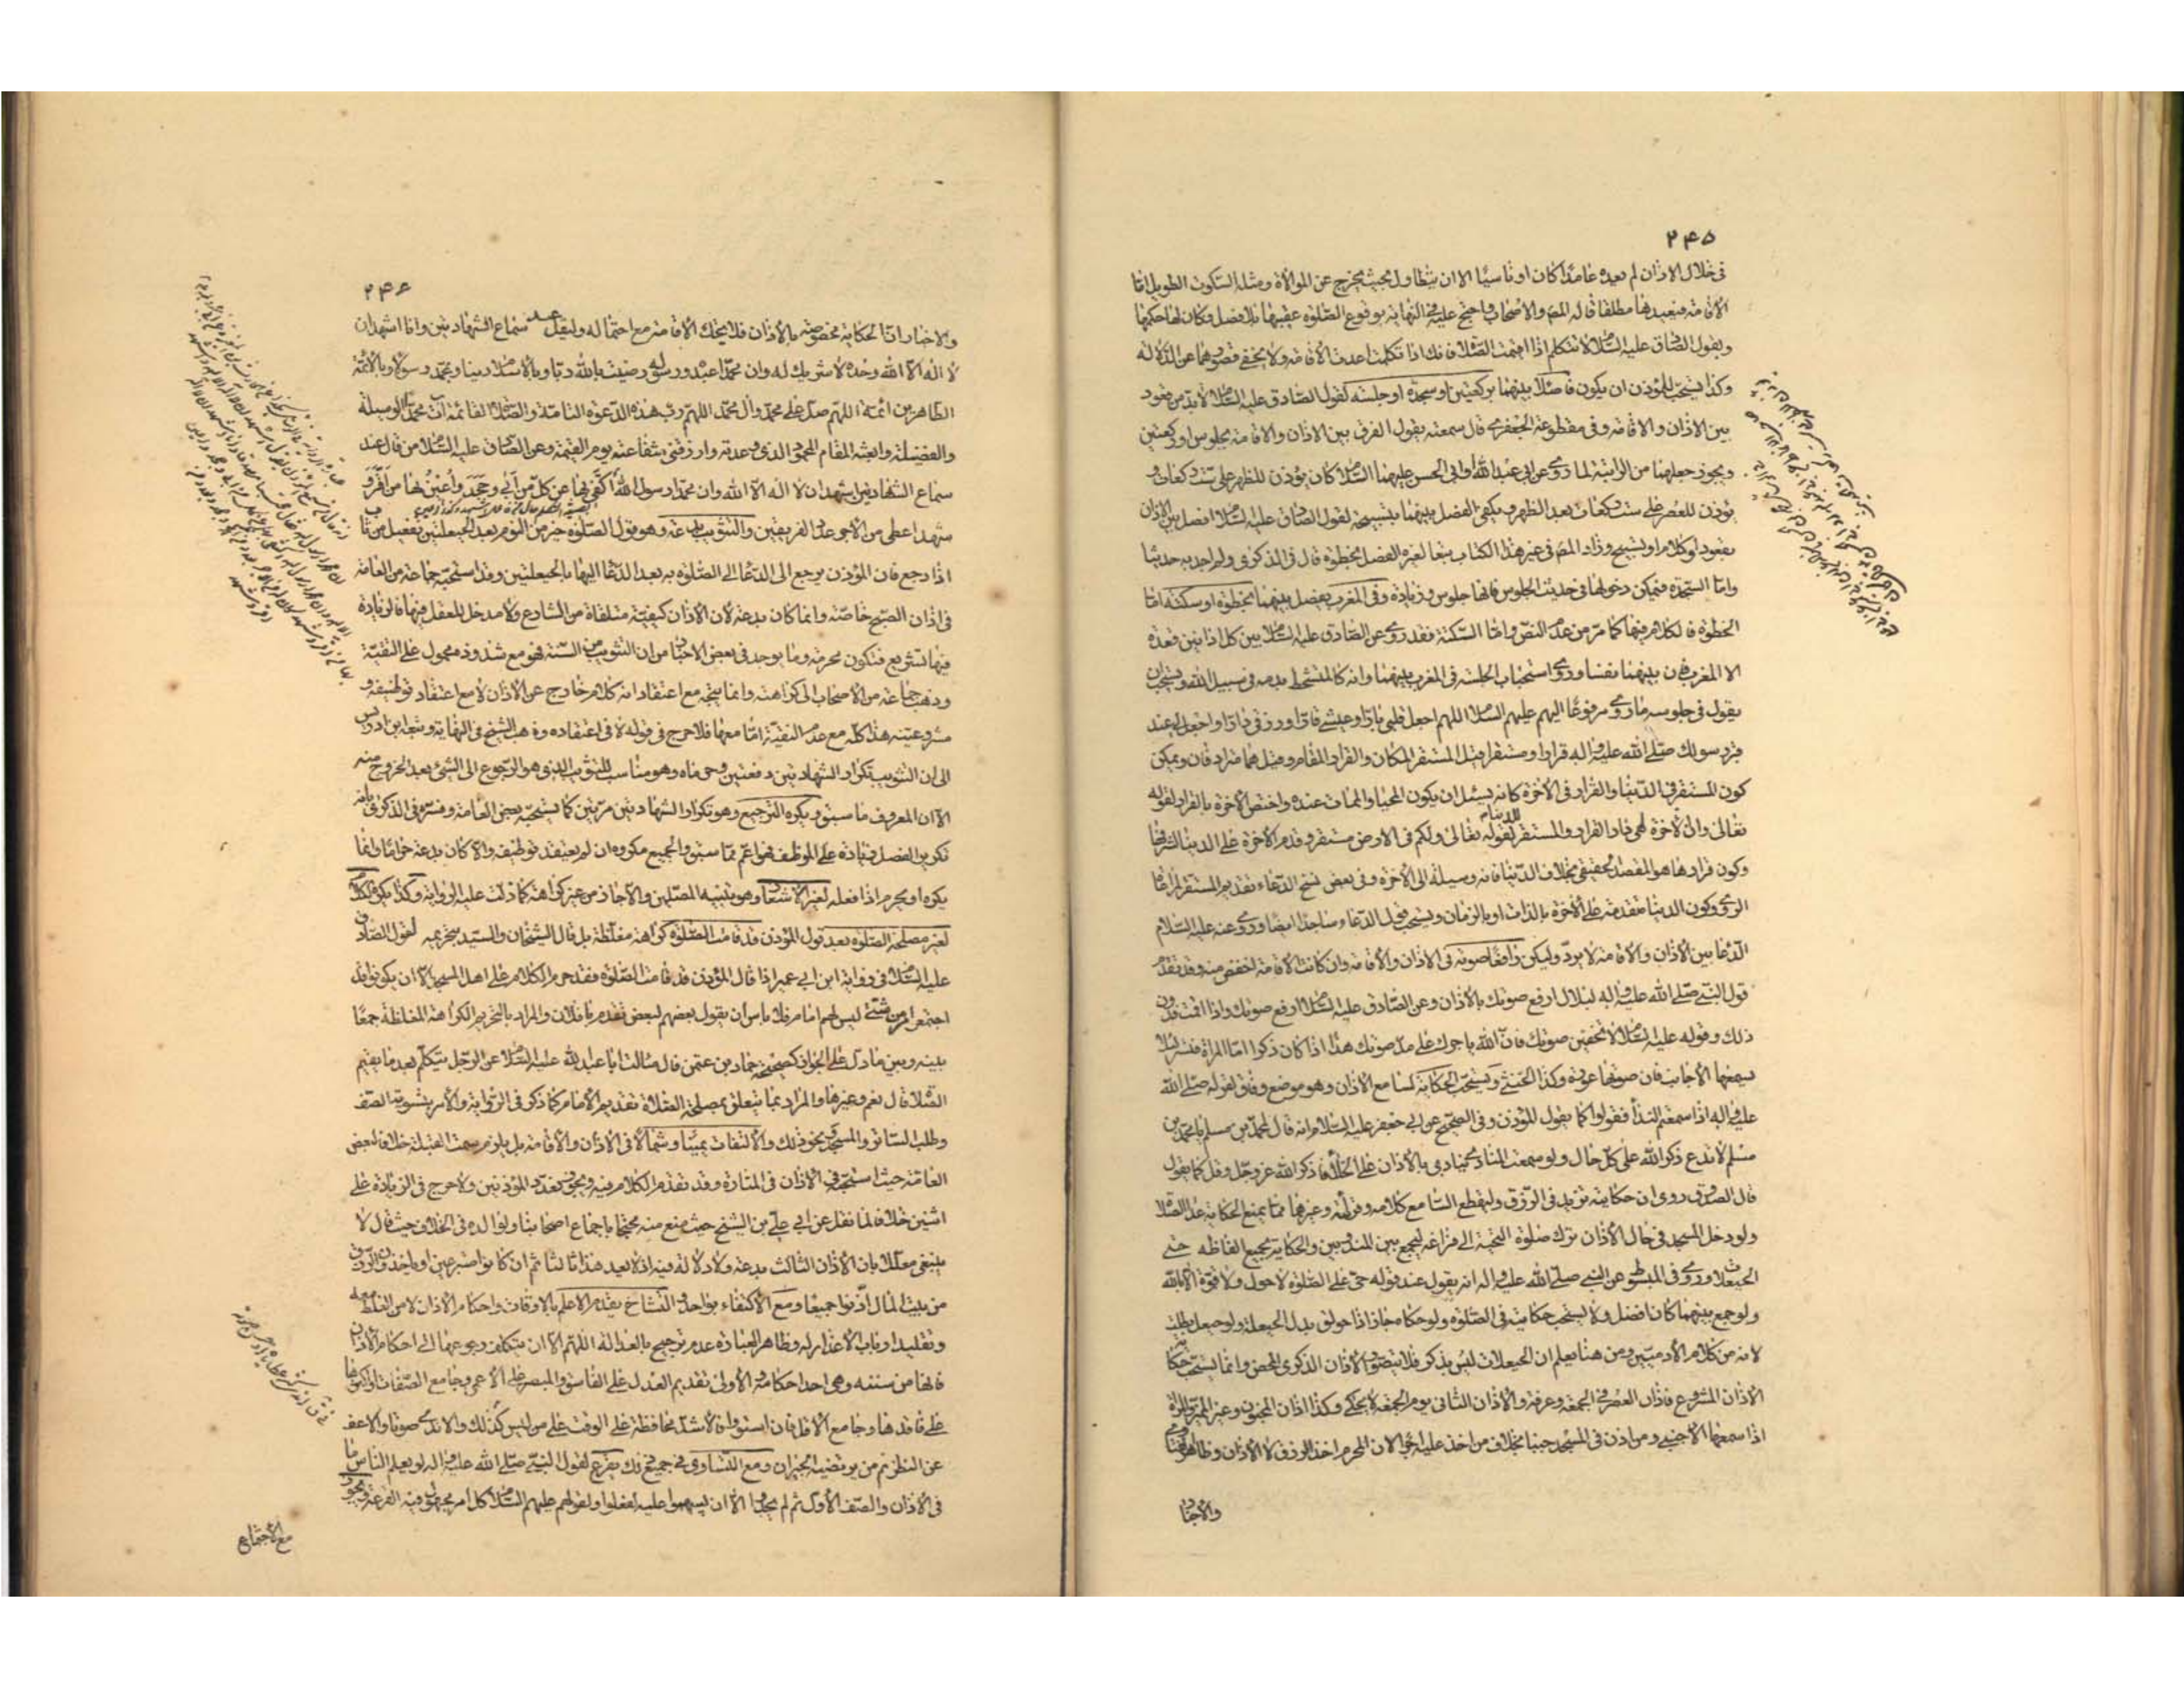 ٢٤٥
فى خلال الاذان لم يعده عامدا كان او ناسيا الا ان يتطاول بحيث يخرج عن الموالاة ومثله السكوت الطويل اما
الاقامة فيعيدها مطلقا قاله المص والاصحاب واحتج عليه فى النهاية بوقوع الصلوة عقيبها بلا فصل فكان لها حكمها
وبقول الصادق عليه السلام لا تتكلم اذا اقمت الصلاة فانك اذا تكلمت اعدت الاقامة ولا يخفى قصورهما عن الدلالة
وكذا يستحب للمؤذن ان يكون فاصلا بينهما بركعتين او سجدة او جلسة كقول الصادق عليه السلام لا بد من قعود
بين الاذان والاقامة وفى مقطوعة الجعفرى قال سمعته يقول الفرق بين الاذان والاقامة بجلوس او ركعتين
ويجوز جعلهما من الراتبة لما روى عن ابى عبد الله وابى الحسن عليهما السلام كان يؤذن للظهر على ست ركعات و
يؤذن للعصر على ست ركعات بعد الظهر ويكفى الفصل بينهما بتسبيحة لقول الصادق عليه السلام افصل بين الاذان
بقعود او كلام او تسبيح وزاد المص فى غير هذا الكتاب تبعا لغيره الفصل بخطوة قال فى الذكرى ولم اجد به حديثا
واما السجدة فيمكن دخولها فى حديث الجلوس فانها جلوس وزيادة وفى المغرب يفصل بينهما بخطوة او سكتة اما
الخطوة فالكلام فيها كما مر من عدم النص واما السكتة فقد روى عن الصادق عليه السلام بين كل اذانين قعدة
الا المغرب فان بينهما نفسا وروى استحباب الجلسة فى المغرب بينهما وانه كالمتشحط بدمه فى سبيل الله ويستحب ان
يقول فى جلوسه ما روى مرفوعا اليهم عليهم السلام اللهم اجعل قلبى بارا وعيشى قارا ورزقى دارا واجعل لى عند
قبر رسولك صلى الله عليه واله قرارا ومستقرا قيل المستقر المكان والقرار المقام وقيل هما مترادفان ويمكن
كون المستقر فى الدنيا والقرار فى الاخرة كانه يسئل ان يكون المحيا والممات عنده واختص الاخرة بالقرار لقوله
تعالى وان الاخرة لهى دار القرار والمستقر للدنيا لقوله تعالى ولكم فى الارض مستقر وقدم الاخرة على الدنيا لشرفها
وكون قرارها هو المقصد الحقيقى بخلاف الدنيا فانه وسيلة الى الاخرة وفى بعض نسخ الدعاء تقديم المستقر مراعاة
الروى وكون الدنيا متقدمة على الاخرة بالذات او بالزمان ويستحب قول الدعاء ساجدا ايضا وروى عنه عليه السلام
الدعا بين الاذان والاقامة لا يرد وليكن رافعا صوته فى الاذان والاقامة وان كانت الاقامة اخفض منه وقد تقدم
قول النبى صلى الله عليه واله لبلال ارفع صوتك بالاذان وعن الصادق عليه السلام ارفع صوتك واذا اقمت فدون
ذلك وقوله عليه السلام لا تخفين صوتك فان الله ياجرك على مد صوتك هذا اذا كان ذكرا اما المراة فتسر لئلا
يسمعها الاجانب فان صوتها عورة وكذا الخنثى ويستحب الحكاية لسامع الاذان وهو موضع وفاق لقوله صلى الله
عليه واله اذا سمعتم النداء فقولوا كما يقول المؤذن وفى الصحيح عن ابى جعفر عليه السلام انه قال لمحمد بن مسلم يا محمد بن
مسلم لا تدع ذكر الله على كل حال ولو سمعت المنادى ينادى بالاذان على الخلاء فاذكر الله عز وجل وقل كما يقول
قال الصدوق روى ان حكايته تزيد فى الرزق وليقطع السامع كلامه وقراءته وغيرهما مما يمنع الحكاية عدا الصلاة
ولو دخل المسجد فى حال الاذان ترك صلوة التحية الى فراغه ليجمع بين المندوبين والحكاية بجميع الفاظه حتى
الحيعلات وروى فى المبسوط عن النبى صلى الله عليه واله انه يقول عند قوله حى على الصلوة لا حول ولا قوة الا بالله
ولو جمع بينهما كان افضل ولا يستحب حكايته فى الصلوة ولو حكاه جاز اذا حولق بدل الحيعلة ولو حيعل بطلت
لانه من كلام الادميين ومن هنا يعلم ان الحيعلات ليس بذكر فلا يتصور الاذان الذكرى المحض وانما يستحب حكاية
الاذان المشروع فاذان العصر فى الجمعة وعرفة والاذان الثانى يوم الجمعة لا يحكى وكذا اذان المجنون وغير المميز والمراة
اذا سمعها الاجنبى ومن اذن فى المسجد جنبا بخلاف من اخذ عليه اجرا لان المحرم اخذ الرزق لا الاذان وظاهر الفتاوى
والاخبار
٢٤٦
والاخبار ان الحكاية مخصوصة بالاذان فلا يحكى الاقامة مع احتماله وليقل عند سماع الشهادتين وانا اشهد ان
لا اله الا الله وحده لا شريك له وان محمدا عبده ورسوله رضيت بالله ربا وبالاسلام دينا وبمحمد رسولا وبالائمة
الطاهرين ائمة اللهم صل على محمد وآل محمد اللهم رب هذه الدعوة التامة والصلوة القائمة ات محمدا الوسيلة
والفضيلة وابعثه المقام المحمود الذى وعدته وارزقنى شفاعته يوم القيمة وعن الصادق عليه السلام من قال عند
سماع الشهادتين اشهد ان لا اله الا الله وان محمدا رسول الله اكفى بها عن كل من ابى وجحد واعين بها من اقر و
شهد اعطى من الاجر عدد الفريقين والتثويب بدعة وهو قول الصلوة خير من النوم بعد الحيعلتين تفعيل من ثاب
اذا رجع فان المؤذن يرجع الى الدعا الى الصلوة به بعد الدعا اليها بالحيعلتين وقد استحبه جماعة من العامة
فى اذان الصبح خاصة وانما كان بدعة لان الاذان كيفية متلقاة من الشارع ولا مدخل للعقل فيها فالزيادة
فيها تشريع فتكون محرمة وما يوجد فى بعض الاخبار من ان التثويب من السنة فهو مع شذوذه محمول على التقية
وذهب جماعة من الاصحاب الى كراهته وانما يتجه مع اعتقاد انه كلام خارج عن الاذان لا مع اعتقاد توظيفه و
مشروعيته هذا كله مع عدم التقية اما معها فلا حرج فى قوله لا فى اعتقاده وذهب الشيخ فى النهاية وتبعه ابن ادريس
الى ان التثويب تكرار الشهادتين دفعتين وحرماه وهو مناسب للتثويب الذى هو الرجوع الى الشئ بعد الخروج منه
الا ان المعروف ما سبق ويكره الترجيع وهو تكرار الشهادتين مرتين كما يستحبه بعض العامة وفسره فى الذكرى بانه
تكرير الفصل زيادة على الموظف فهو اعم مما سبق والجميع مكروه ان لم يعتقد توظيفه والا كان بدعة حراما وانما
يكره او يحرم اذا فعله لغير الاشعار وهو تنبيه المصلين والا جاز من غير كراهة كما دلت عليه الرواية وكذا يكره الكلام
لغير مصلحة الصلوة بعد قول المؤذن قد قامت الصلوة كراهة مغلظة بل قال الشيخان والسيد بتحريمه لقول الصادق
عليه السلام فى رواية ابن ابى عمير اذا قال المؤذن قد قامت الصلوة فقد حرم الكلام على اهل المسجد الا ان يكونوا قد
اجتمعوا من شتى ليس لهم امام فلا باس ان يقول بعضهم لبعض تقدم يا فلان والمراد بالتحريم الكراهة المغلظة جمعا
بينه وبين ما دل على الجواز كصحيحة حماد بن عثمن قال سالت ابا عبد الله عليه السلام عن الرجل يتكلم بعد ما يقيم
الصلاة قال نعم وغيرها والمراد بما يتعلق بمصلحة الصلاة تقديم الامام كما ذكر فى الرواية والامر بتسوية الصف
وطلب الساتر والمسجد ونحو ذلك والالتفات يمينا وشمالا فى الاذان والاقامة بل يلزم سمت القبلة خلافا لبعض
العامة حيث استحبه فى الاذان فى المنارة وقد تقدم الكلام فيه ويجوز تعدد المؤذنين ولا حرج فى الزيادة على
اثنين خلافا لما نقل عن ابى على بن الشيخ حيث منع منه محتجا باجماع اصحابنا ولوالده فى الخلاف حيث قال لا
ينبغى معللا بان الاذان الثالث بدعة ولا دلالة فيه اذ لا يعد هذا ثالثا ثم ان كانوا متبرعين او ياخذون الرزق
من بيت المال اذنوا جميعا ومع الاكتفاء بواحد والتشاح يقدم الاعلم بالاوقات واحكام الاذان لامن الغلط معه
وتقليد ارباب الاعذار له وظاهر العبارة عدم ترجيح بالعدالة اللهم الا ان يتكلف رجوعها الى احكام الاذان
فانها من سننه وهى احد احكامه والاولى تقديم العدل على الفاسق والمبصر على الاعمى وجامع الصفات او اكثرها
على فاقدها وجامع الاقل فان استووا فالاشد محافظة على الوقت على من ليس كذلك والاندى صوتا والاعف
عن النظر ثم من يرتضيه الجيران ومع التساوى فى جميع ذلك يقرع لقول النبى صلى الله عليه واله لو يعلم الناس ما
فى الاذان والصف الاول ثم لم يجدوا الا ان يستهموا عليه لفعلوا ولقولهم عليهم السلام كل امر مجهول فيه القرعة ويجوز
مع الاجتماع